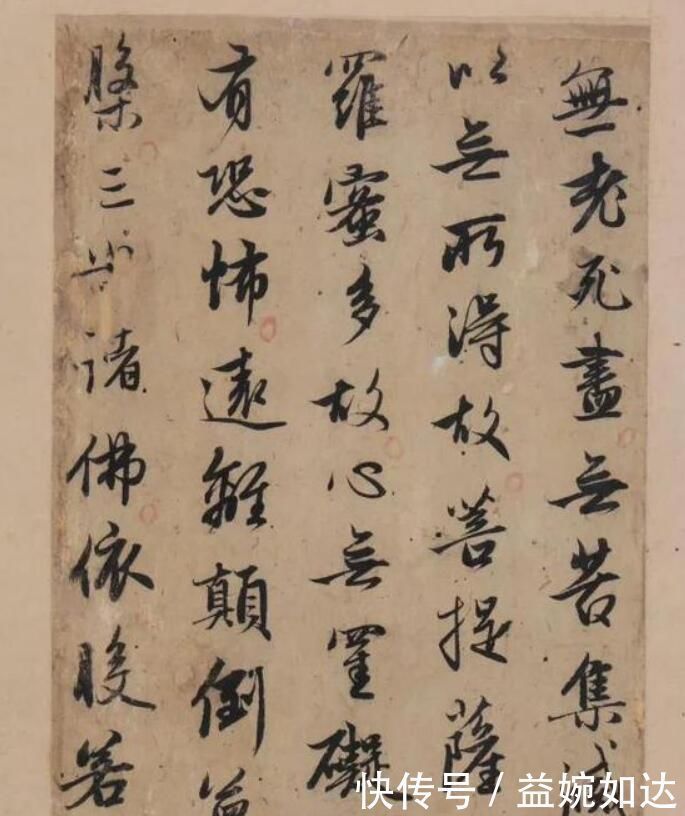 無老死盡无苦集滅
以无所得故菩提薩
羅蜜多故心无罣礙
有恐怖遠離顛倒
槃三世諸佛依般若
快传号 / 益婉如达